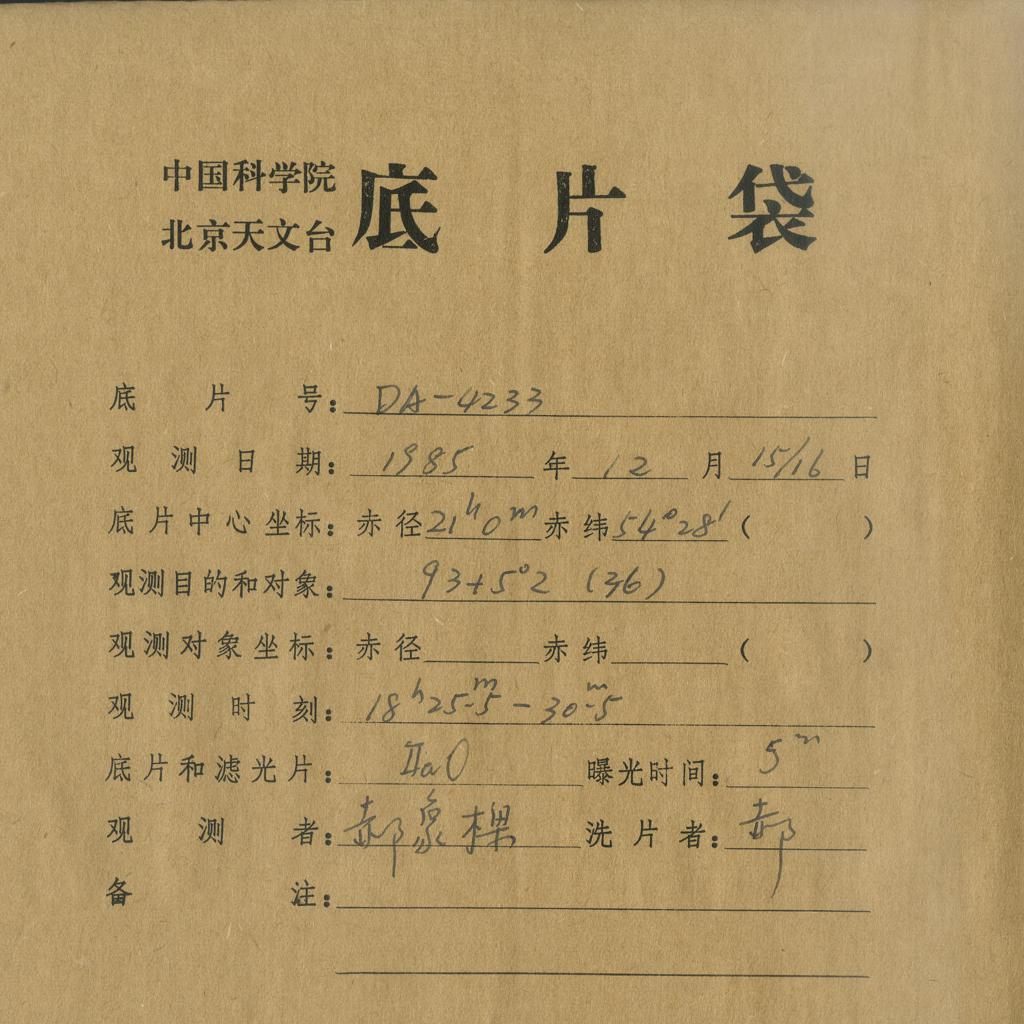 中国科学院
北京天文台 底片袋
底片号：DA-4233
观测日期：1985年12月15/16日
底片中心坐标：赤径21ʰ0ᵐ赤纬54°28′（ ）
观测目的和对象：93+5°2 (36)
观测对象坐标：赤径 赤纬 （ ）
观测时刻：18ʰ25ᵐ.5－30ᵐ.5
底片和滤光片：ⅡaO 曝光时间：5ᵐ
观测者：郝象樑 洗片者：郝
备注：